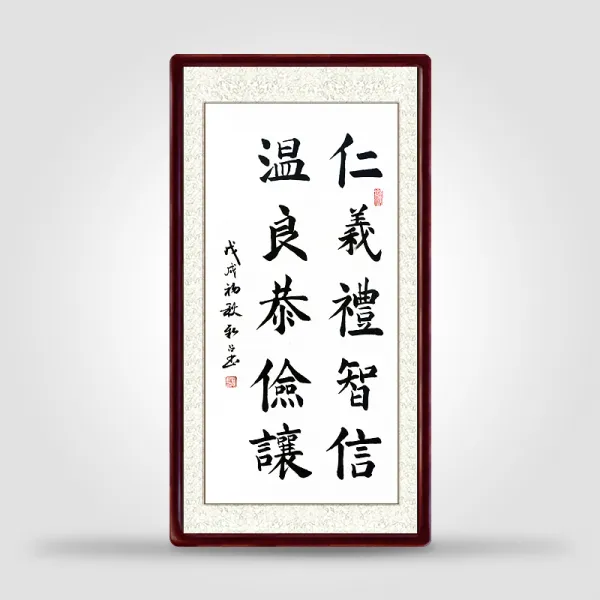 仁義禮智信
温良恭儉讓
戊戌初秋